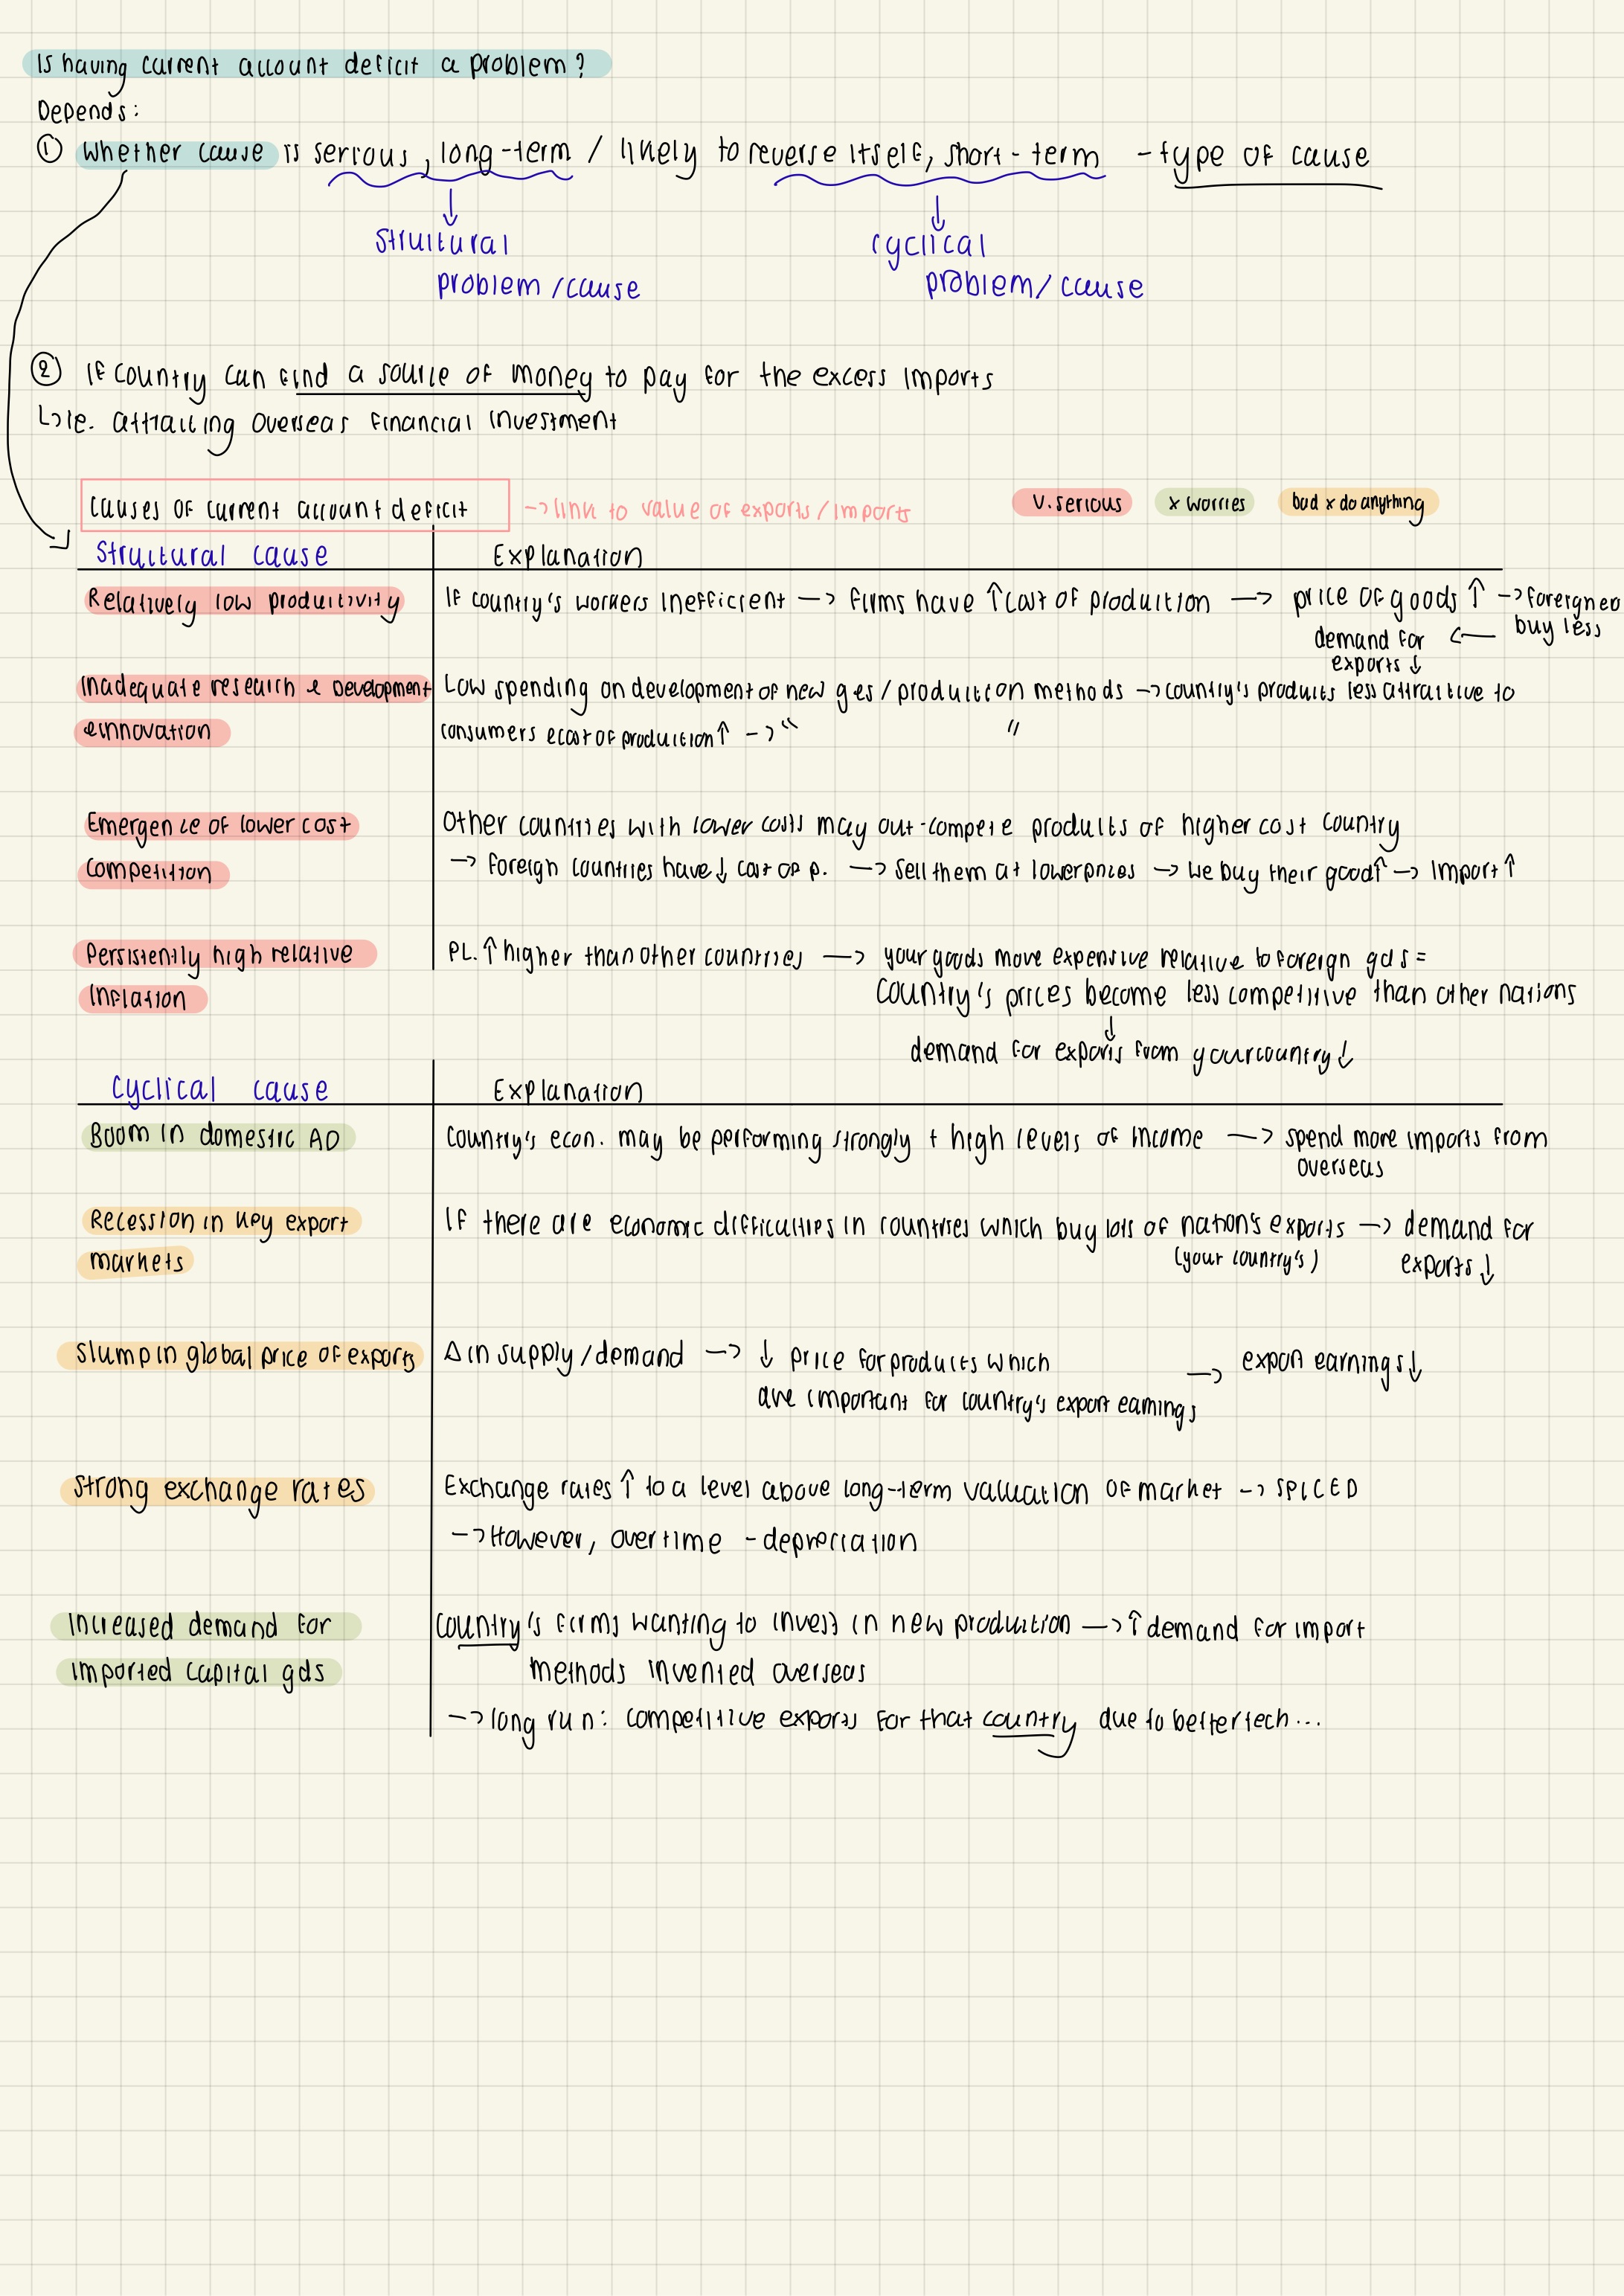 Is having current account deficit a problem?
Depends:
① Whether cause is serious, long-term / likely to reverse itself, short-term - type of cause
↓ ↓
structural cyclical
problem/cause problem/cause
② If country can find a source of money to pay for the excess imports
↳ ie. attracting overseas financial investment
causes of current account deficit → link to value of exports/imports v.serious x worries bad x do anything
Structural cause Explanation
Relatively low productivity If country's workers inefficient → firms have ↑ cost of production → price of goods ↑ → foreigner
buy less
demand for ←
exports ↓
Inadequate research & Development Low spending on development of new gds/production methods → country's products less attractive to
& innovation consumers & cost of production ↑ → " "
Emergence of lower cost Other countries with lower costs may out-compete products of higher cost country
competition → foreign countries have ↓ cost of p. → sell them at lower prices → we buy their good ↑ → import ↑
Persistently high relative PL. ↑ higher than other countries → your goods more expensive relative to foreign gds =
inflation country's prices become less competitive than other nations
↓
demand for exports from your country ↓
Cyclical cause Explanation
Boom in domestic AD Country's econ. may be performing strongly + high levels of income → spend more imports from
overseas
Recession in key export If there are economic difficulties in countries which buy lots of nation's exports → demand for
markets (your country's) exports ↓
Slump in global price of exports Δ in supply/demand → ↓ price for products which → export earnings ↓
are important for country's export earnings
Strong exchange rates Exchange rates ↑ to a level above long-term valuation of market → SPICED
→ However, overtime - depreciation
Increased demand for Country's firms wanting to invest in new production → ↑ demand for import
imported capital gds methods invented overseas
→ long run: competitive exports for that country due to better tech...